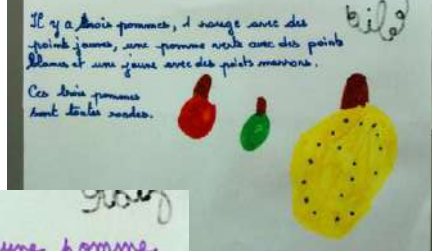 Il y a trois pommes, 1 rouge avec des
points jaunes, une pomme verte avec des points
blancs et une jaune avec des points marrons.
Ces trois pommes
sont toutes rondes.
une pomme